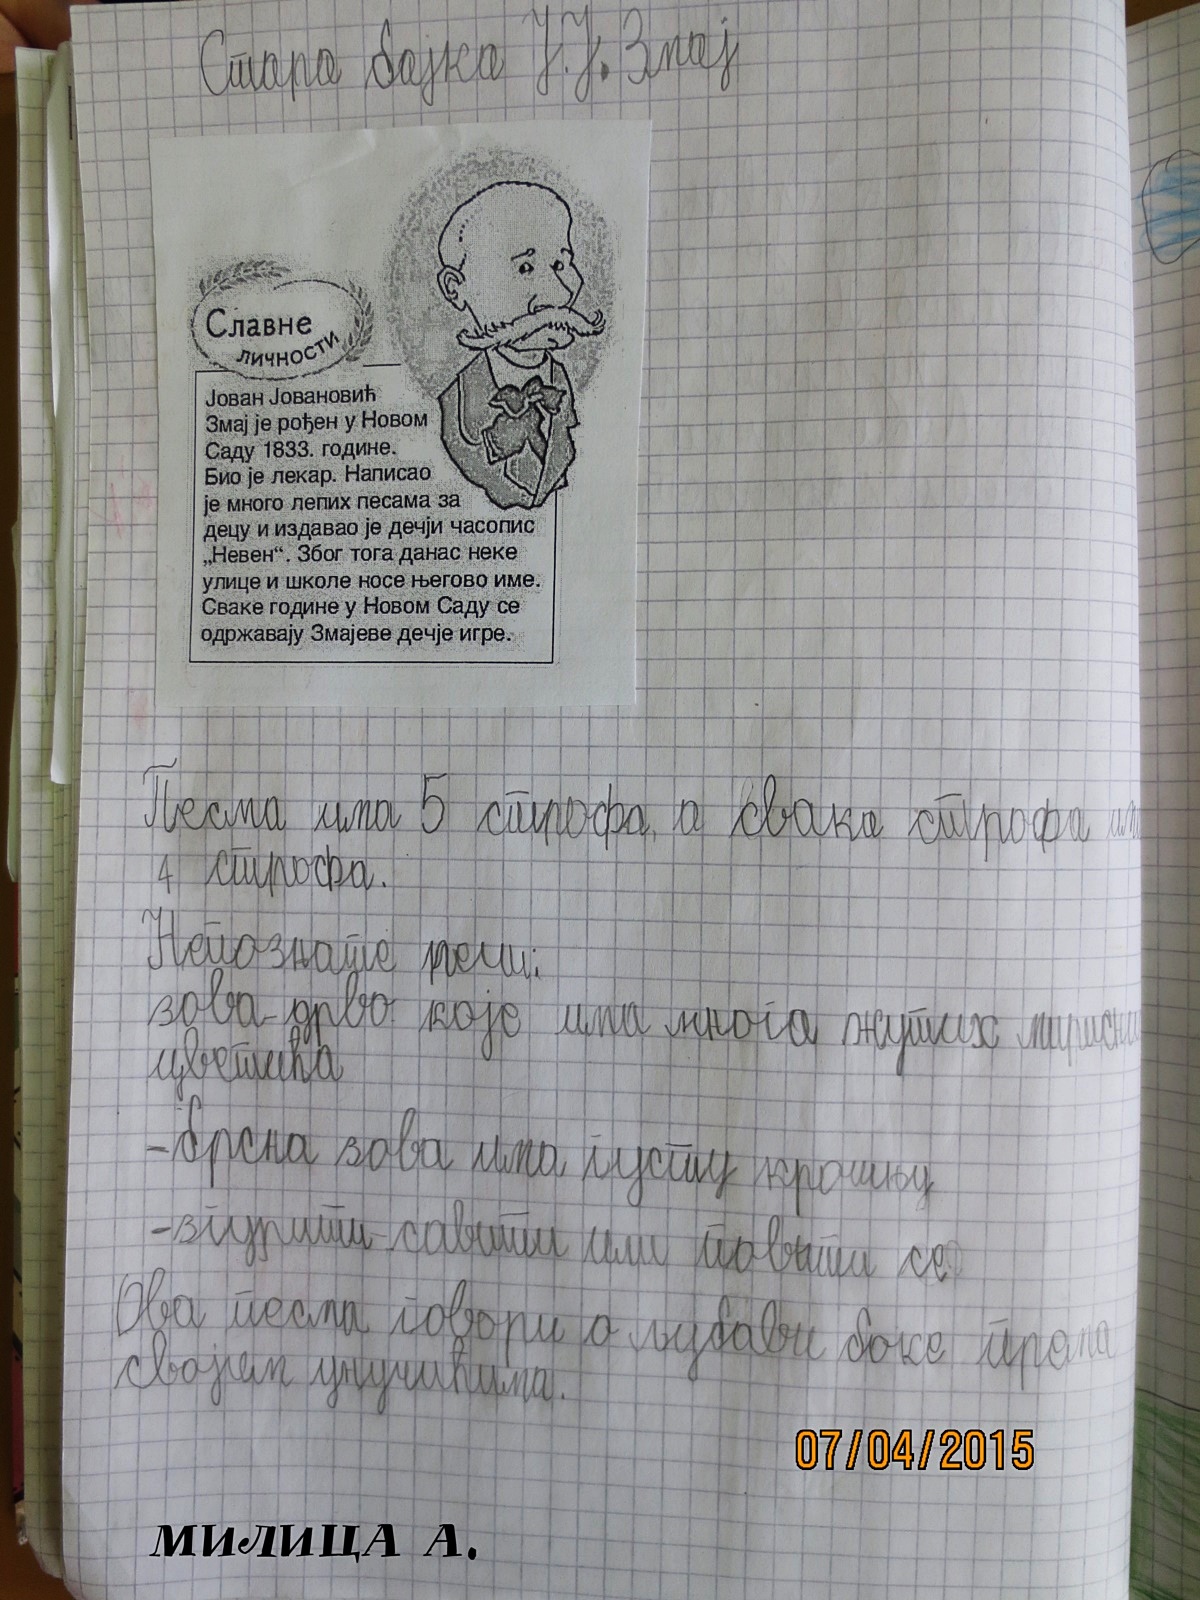 Стара бајка Ј.Ј. Змај
Славне
личности
Јован Јовановић
Змај је рођен у Новом
Саду 1833. године.
Био је лекар. Написао
је много лепих песама за
децу и издавао је дечји часопис
„Невен“. Због тога данас неке
улице и школе носе његово име.
Сваке године у Новом Саду се
одржавају Змајеве дечје игре.
Песма има 5 строфа, а свака строфа има
4 строфа.
Непознате речи:
зова-дрво које има много жутих
цветића
-брсна зова има густу крошњу
-згурити-савити или повити се
Ова песма говори о љубави баке према
својем унучићима.
07/04/2015
МИЛИЦА А.